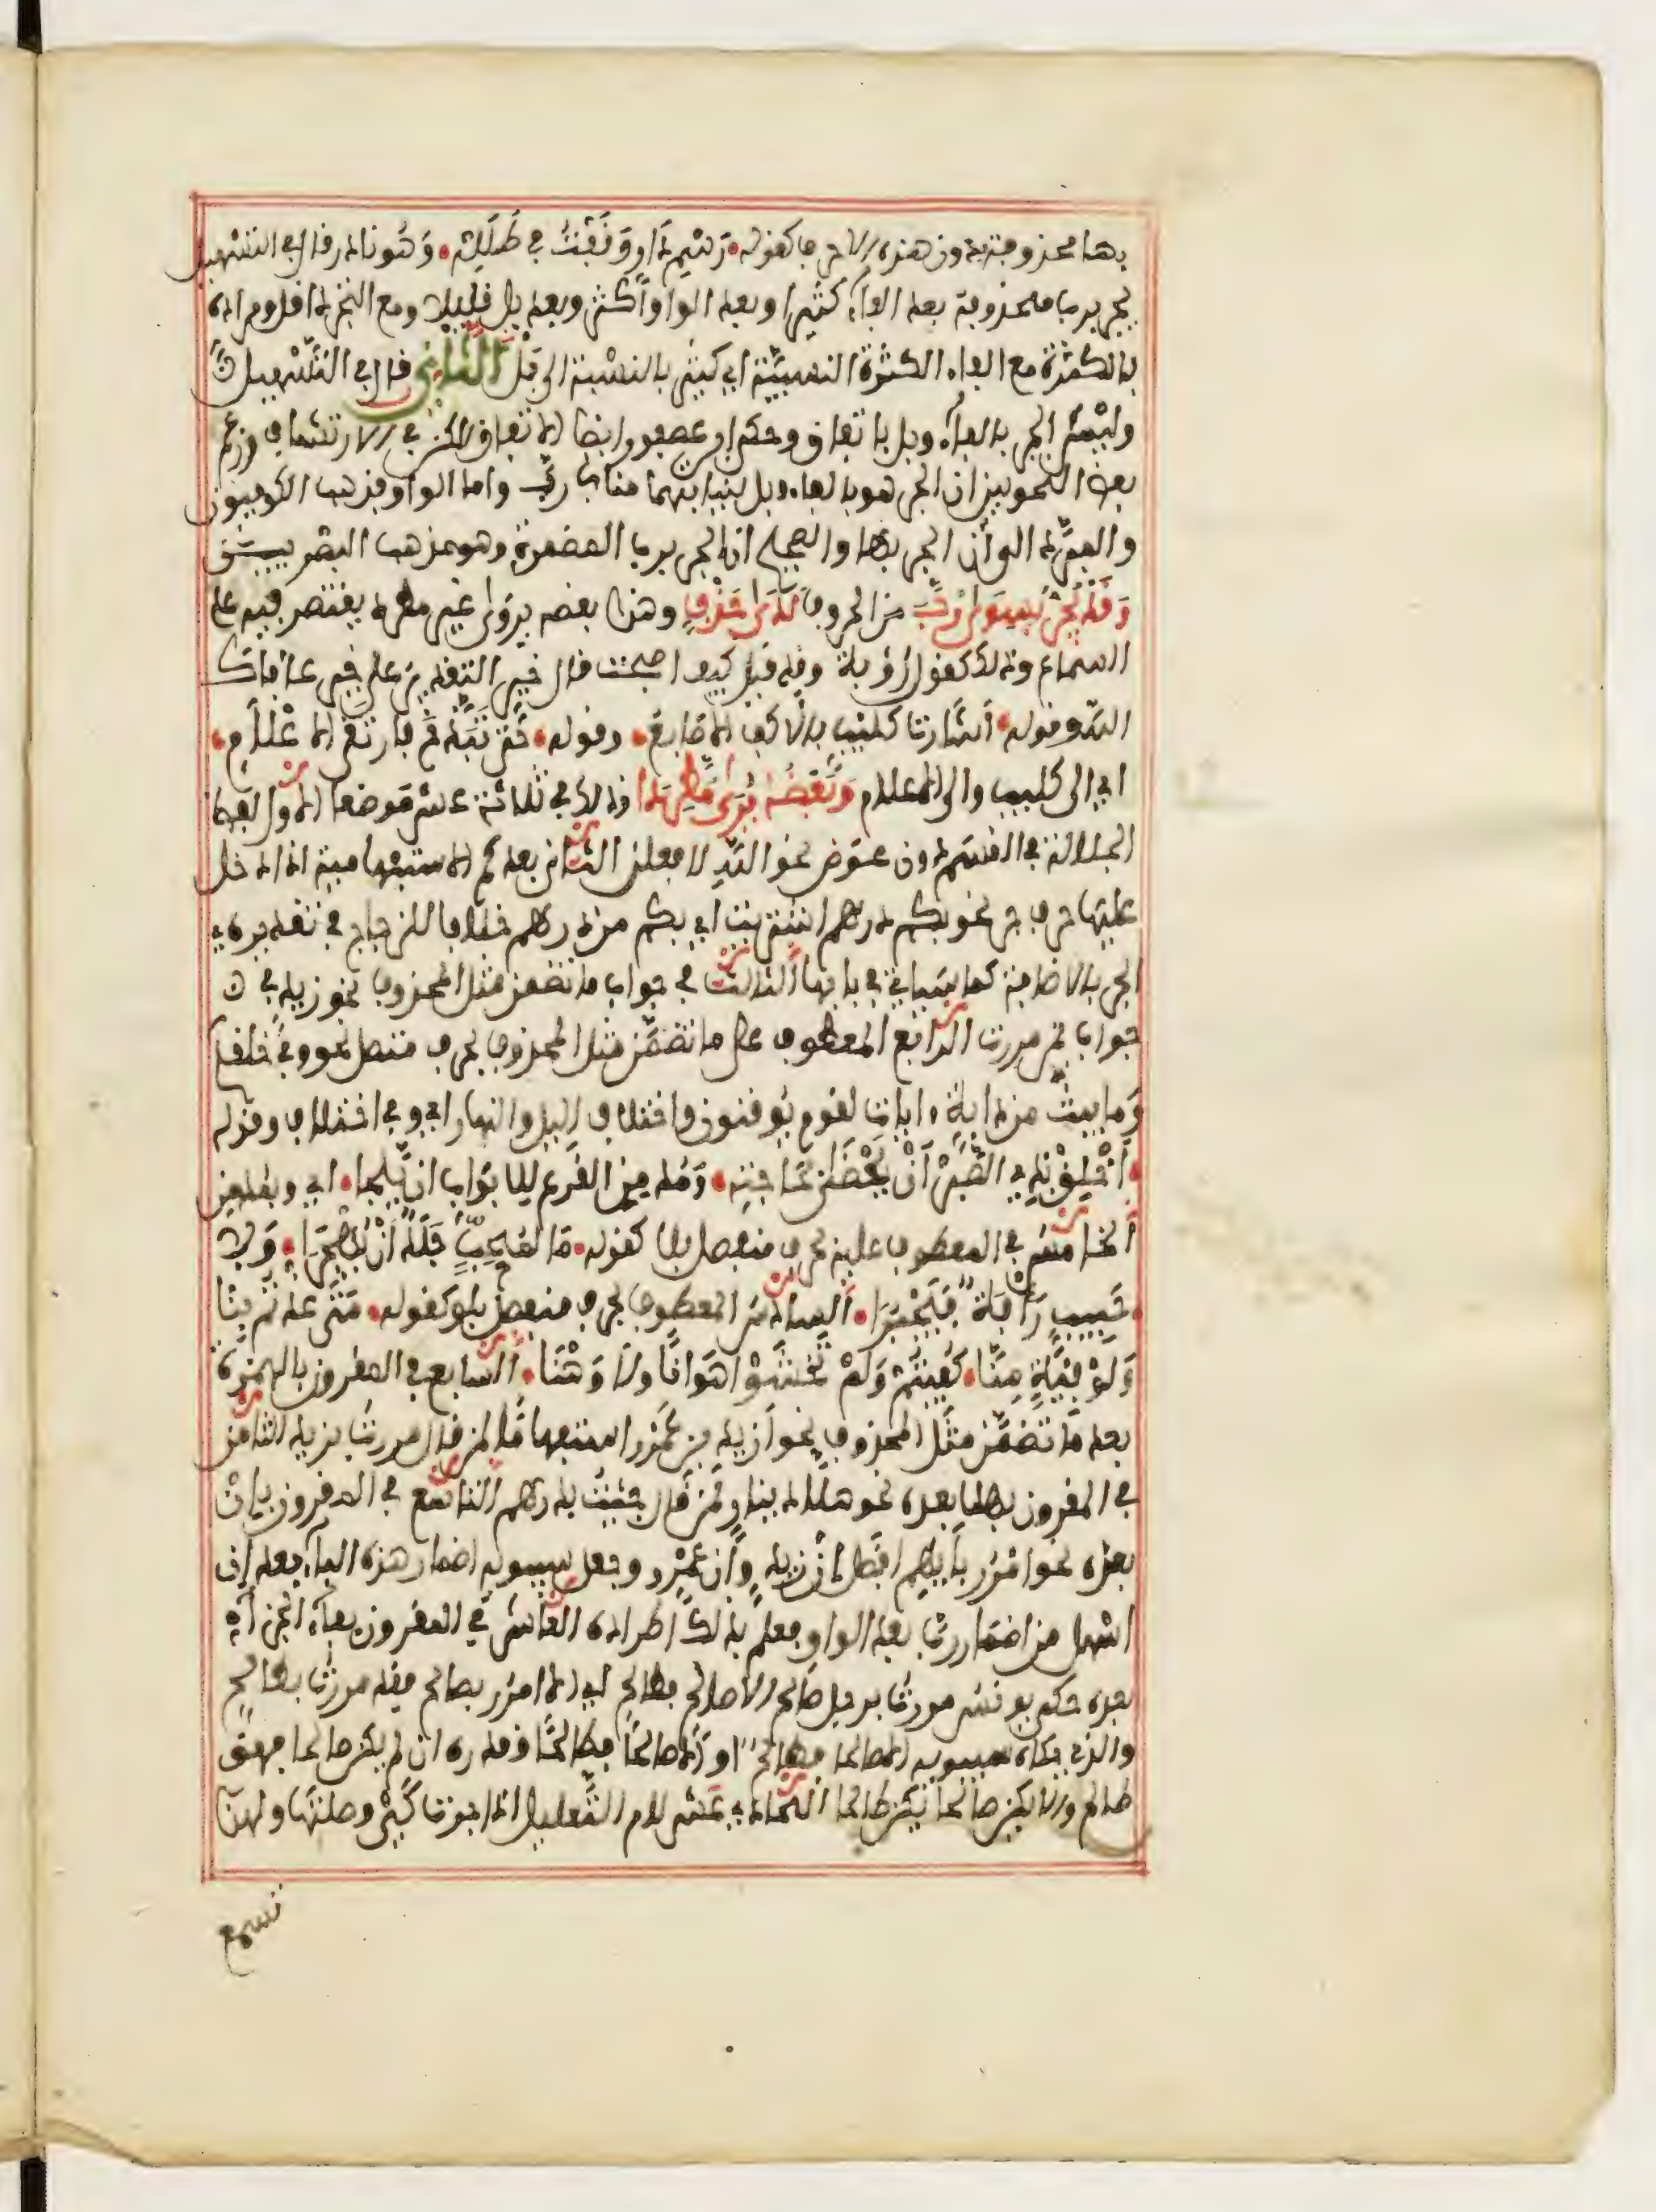 بها محذوفة بدون هذه الاحرف كقوله • رَسْمِ دَارٍ وَقَفْتُ في طَلَلِهْ • وَهُوَ نادر قال في التسهيل
يجر برب محذوفة بعد الفاء كثيرا وبعد الواو أكثر وبعد بل قليلا ومع التجرد اقل ومراده
بالكثرة مع الفاء الكثرة النسبية اي كثير بالنسبة الى بَلْ الثاني قال في التسهيل ن
وليس الجر بالفاء وبل باتفاق وحكى ابن عصفور ايضا الاتفاق لكن في الارتشاف وزعم
بعض النحويين ان الجر هو بالفاء وبل لنيابتهما مناب رب واما الواو فذهب الكوفيون
والمبرد الى أن الجر بها والصحيح ان الجر برب المضمرة وهو مذهب البصريين
وَقَدْ يُجَرُّ بِسِوَى رُبَّ من الحروف لَدَى حَذْفٍ وهذا بعضه يروى غير مطرد يقتصر فيه على
السماع وذلك كقول رؤبة وقد قيل كيف اصبحت قال خير التقدير على خير عافاك
الله وقوله • أشارت كليب بالاكف الاصابع • وقوله • حَتَّى تَبَذَّخَ فارتقى الاعْلامِ •
اي الى كليب والى الاعلام وَبَعْضُهُ يُرَى مُطَّرِدَا وذلك في ثلاثة عشر موضعا الاول لفظ
الجلالة في القسم دون عوض نحو الله لافعلن الثاني بعد كم الاستفهامية اذا دخل
عليها حرف جر نحو بكم درهم اشتريت اي بكم من درهم خلافا للزجاج في تقديره
الجر بالاضافة كما سياتي في بابها الثالث في جواب ما تضمن مثل المحذوف نحو زيد في ن
جواب بمن مررت الرابع المعطوف على ما تضمن مثل المحذوف بحرف متصل نحو وفي خلقكم
وما يبث من دابة ءايات لقوم يوقنون واختلاف اليل والنهار اي وفي اختلاف وقوله
• أخْلِقْ بِذِي الصَّبْرِ أنْ يَحْظَى بِحَاجَتِهِ • وَمُدْمِنِ القرع للابواب ان يلجا • اي وبمدمن
الخامس في المعطوف عليه بحرف منفصل بلا كقوله • ما لمحبٍّ جَلَدٌ أنْ يُهْجَرا • وَلا
• حَبِيبٍ رَأْفَةٌ فَيَجْبُرَا • السادس المعطوف بحرف منفصل بلو كقوله • مَتَى عُذْتُمْ بِنَا
وَلَوْ فِئَةٍ مِنَّا • كُفِيتُمْ وَلَمْ تَخْشَوْا هَوَانًا ولا وَهْنَا • السابع في المقرون بالهمزة
بعد ما تضمن مثل المحذوف نحو أزيد بن عمرو استفهاما لمن قال مررت بزيد الثامن
في المقرون بهلا بعده نحو هلا دينار لمن قال جئت بدرهم التاسع في المقرون بإن
بعده نحو امرر بأيهم افضل إن زيد وإن عمرو وجعل سيبويه اضمار هذه الباء بعد إن
اسهل من اضمار رب بعد الواو فعلم بذلك اطراده العاشر في المقرون بفاء الجزاء
بعده حكى يونس مررت برجل صالح الا صالح فطالح اي الا امرر بصالح فقد مررت بطالح
والذي حكاه سيبويه الا صالحا فطالح او الا صالحا فطالحا وقدره ان لم يكن صالحا فهو
طالح والا يكن صالحا يكن طالحا الحادي عشر لام التعليل اذا جرت كي وصلتها ولهذا
تسمع